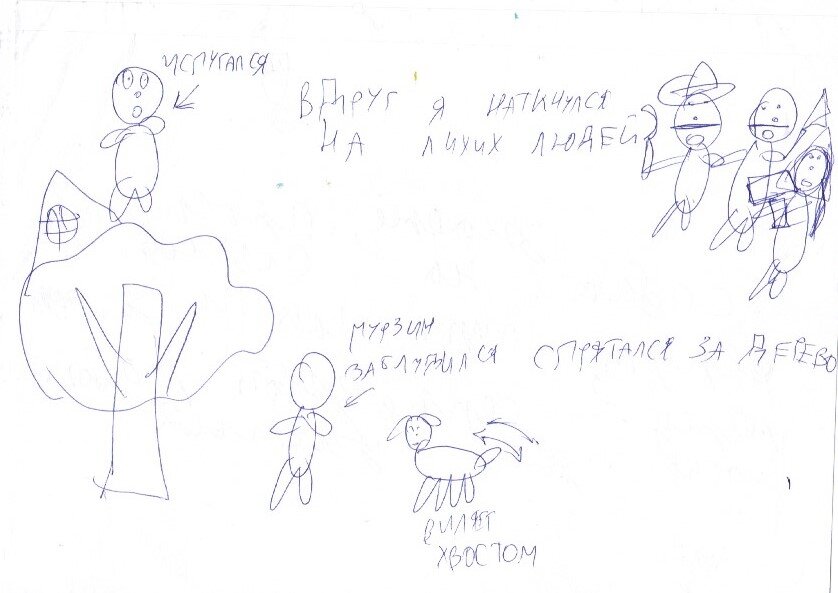 ИСПУГАЛСЯ
ВДРУГ Я НАТКНУЛСЯ
НА ЛИХИХ ЛЮДЕЙ
МУРЗИН
ЗАБЛУДИЛСЯ СПРЯТАЛСЯ ЗА ДЕРЕВО
ВИЛЯЕТ
ХВОСТОМ